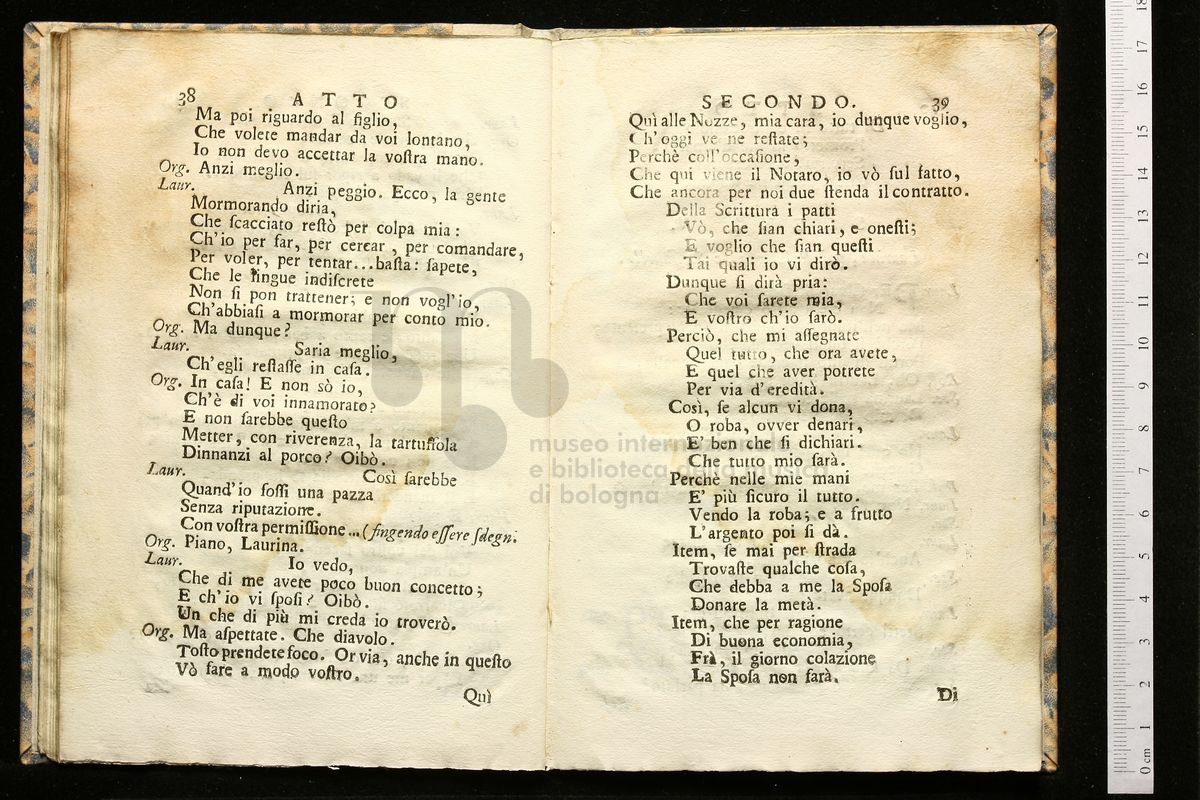 38 ATTO
Ma poi riguardo al figlio,
Che volete mandar da voi lontano,
Io non devo accettar la voſtra mano.
Org. Anzi meglio.
Laur. Anzi peggio. Ecco, la gente
Mormorando diria,
Che ſcacciato reſtò per colpa mia:
Ch'io per far, per cercar, per comandare,
Per voler, per tentar...baſta: ſapete,
Che le lingue indiſcrete
Non ſi pon trattener; e non vogl'io,
Ch'abbiaſi a mormorar per conto mio.
Org. Ma dunque?
Laur. Saria meglio,
Ch'egli reſtaſſe in caſa.
Org. In caſa! E non sò io,
Ch'è di voi innamorato?
E non ſarebbe queſto
Metter, con riverenza, la tartuffola
Dinnanzi al porco? Oibò.
Laur. Così ſarebbe
Quand'io foſſi una pazza
Senza riputazione.
Con voſtra permiſſione... (fingendo eſſere ſdegn.
Org. Piano, Laurina.
Laur. Io vedo,
Che di me avete poco buon concetto;
E ch'io vi ſpoſi? Oibò.
Un che di più mi creda io troverò.
Org. Ma aſpettate. Che diavolo.
Toſto prendete foco. Or via, anche in queſto
Vò fare a modo voſtro.
Quì
SECONDO. 39
Quì alle Nozze, mia cara, io dunque voglio,
Ch'oggi ve ne reſtate;
Perchè coll'occaſione,
Che qui viene il Notaro, io vò ſul fatto,
Che ancora per noi due ſtenda il contratto.
Della Scrittura i patti
Vò, che ſian chiari, e oneſti;
E voglio che ſian queſti
Tai quali io vi dirò.
Dunque ſi dirà pria:
Che voi ſarete mia,
E voſtro ch'io ſarò.
Perciò, che mi aſſegnate
Quel tutto, che ora avete,
E quel che aver potrete
Per via d'eredità.
Così, ſe alcun vi dona,
O roba, ovver denari,
E' ben che ſi dichiari.
Che tutto mio ſarà.
Perchè nelle mie mani
E' più ſicuro il tutto.
Vendo la roba; e a frutto
L'argento poi ſi dà.
Item, ſe mai per ſtrada
Trovaſte qualche coſa,
Che debba a me la Spoſa
Donare la metà.
Item, che per ragione
Di buona economia,
Frà, il giorno colazione
La Spoſa non farà.
Di
museo internazionale
e biblioteca della musica
di bologna
0 cm 1 2 3 4 5 6 7 8 9 10 11 12 13 14 15 16 17 18